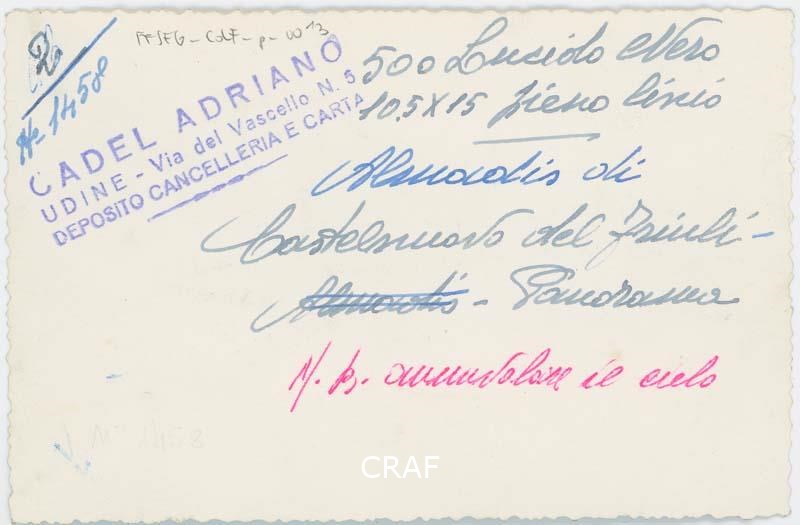 2
PFSFG-CdF-p-0013
No 1458
CADEL ADRIANO
UDINE - Via del Vascello N. 5
DEPOSITO CANCELLERIA E CARTA
500 Lucido Nero
10,5X15 pieno liscio
Almadis di
Castelnuovo del Friuli -
Almadis - Panorama
N. B. annuvolare il cielo
No 1458
CRAF